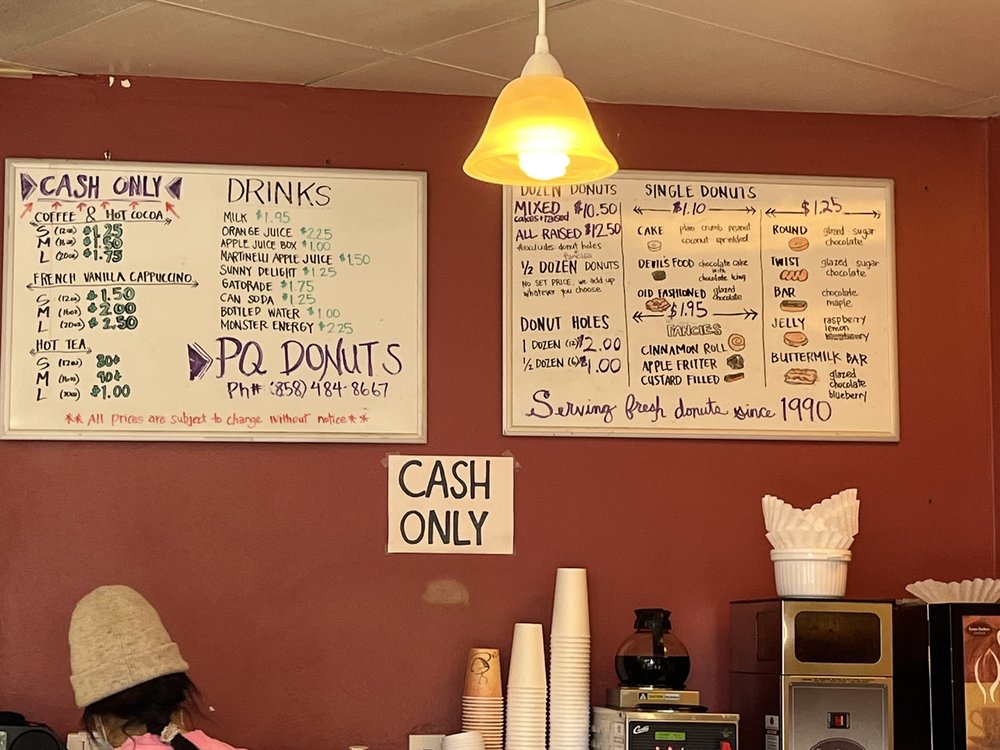 CASH ONLY
COFFEE & HOT COCOA
S (12oz) $1.25
M (16oz) $1.50
L (20oz) $1.75
FRENCH VANILLA CAPPUCCINO
S (12oz) $1.50
M (16oz) $2.00
L (20oz) $2.50
HOT TEA
S (12oz) 80¢
M (16oz) 90¢
L (20oz) $1.00
DRINKS
MILK $1.95
ORANGE JUICE $2.25
APPLE JUICE BOX $1.00
MARTINELLI APPLE JUICE $1.50
SUNNY DELIGHT $1.25
GATORADE $1.75
CAN SODA $1.25
BOTTLED WATER $1.00
MONSTER ENERGY $2.25
PQ DONUTS
Ph# (858)-484-8667
**All prices are subject to change without notice**
DOZEN DONUTS
MIXED $10.50
cakes+raised
ALL RAISED $12.50
*excludes donut holes
fancies
1/2 DOZEN DONUTS
NO SET PRICE, we add up
whatever you choose
DONUT HOLES
1 DOZEN (12) $2.00
1/2 DOZEN (6) $1.00
SINGLE DONUTS
$1.10
CAKE plain crumb peanut
coconut sprinkled
DEVIL'S FOOD chocolate cake
with
chocolate icing
OLD FASHIONED glazed
chocolate
$1.95
FANCIES
CINNAMON ROLL
APPLE FRITTER
CUSTARD FILLED
$1.25
ROUND glazed sugar
chocolate
TWIST glazed sugar
chocolate
BAR chocolate
maple
JELLY raspberry
lemon
BUTTERMILK BAR
glazed
chocolate
blueberry
Serving fresh donuts since 1990
CASH
ONLY
CAUTION
Curtis